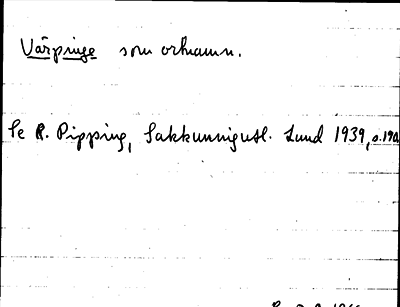 Värpinge som ortnamn.
Se R. Pipping, Sakkunnigutl. Lund 1939, s. 190